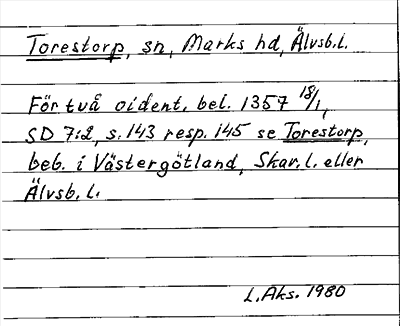 Torestorp, sn, Marks hd, Älvsb.l.
För två oident. bel. 1357 18/1,
SD 7:2, s. 143 resp. 145 se Torestorp,
beb. i Västergötland, Skar.l. eller
Älvsb.l.
L.Aks. 1980